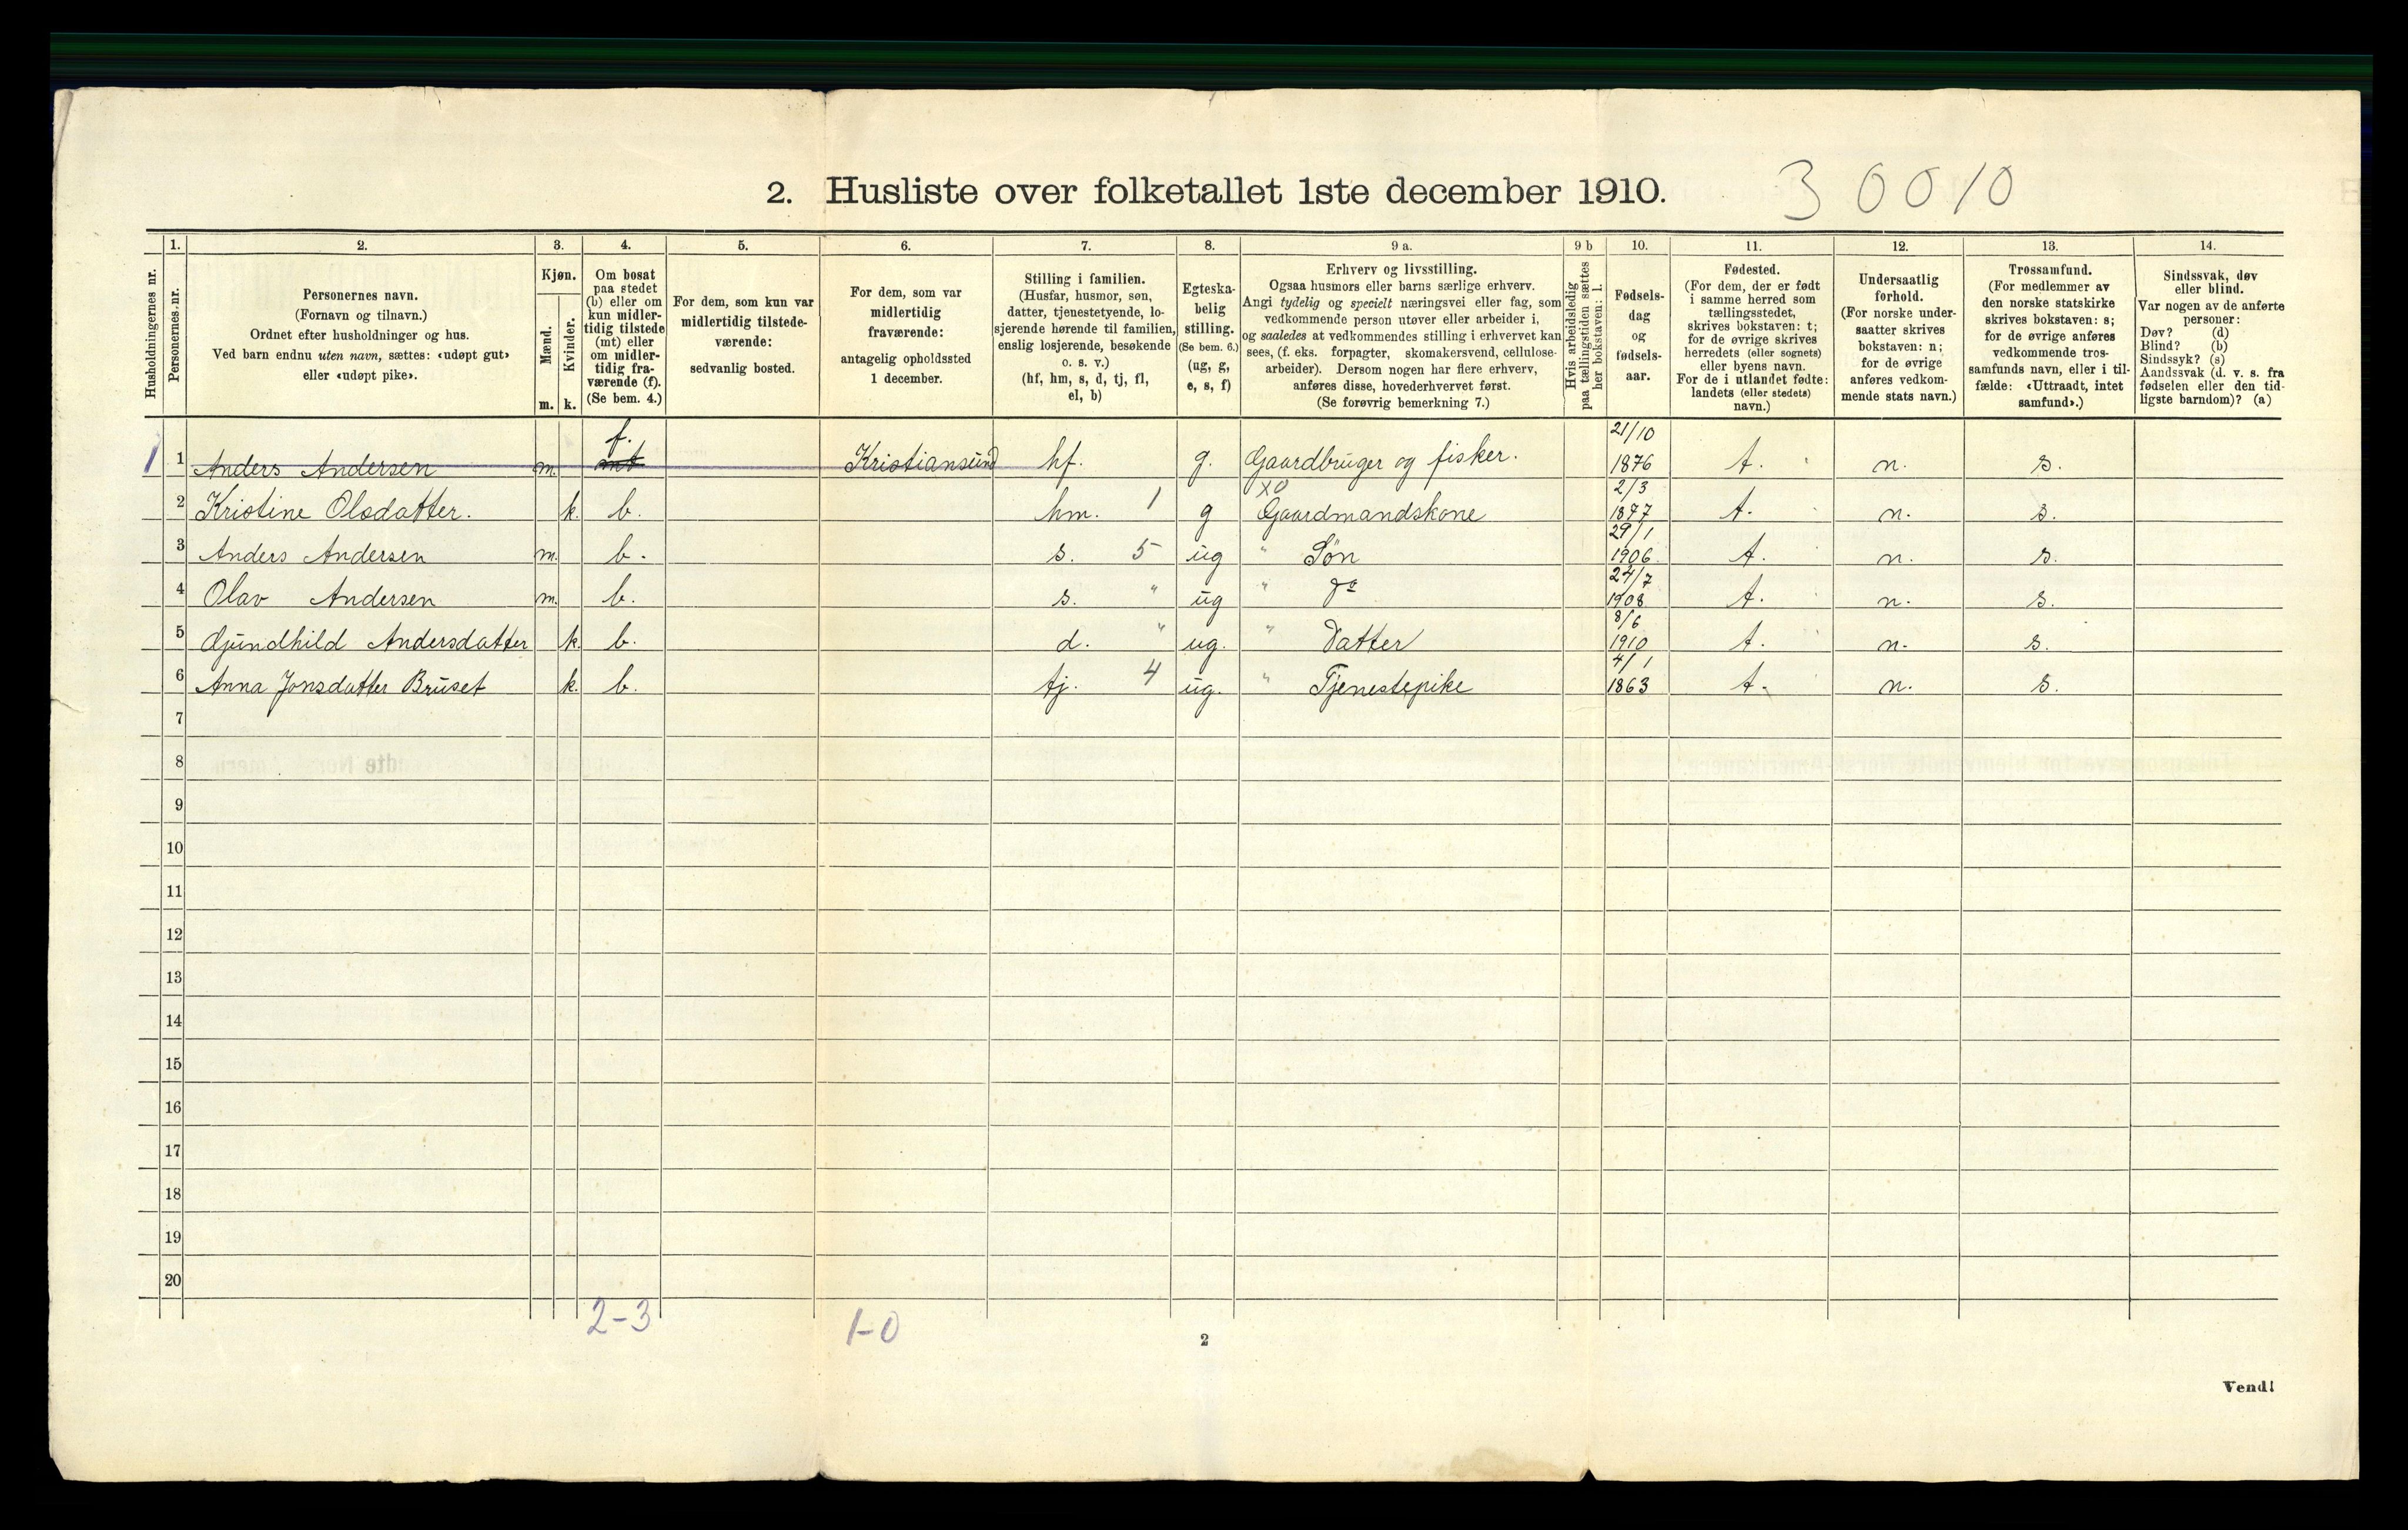 2. Husliste over folketallet 1ste december 1910. 30010
1. 2. 3. 4. 5. 6. 7. 8. 9 a. 9 b 10. 11. 12. 13. 14.
Husholdningernes nr.
Personernes nr.
Personernes navn.
(Fornavn og tilnavn.)
Ordnet efter husholdninger og hus.
Ved barn endnu uten navn, sættes: «udøpt gut»
eller «udøpt pike».
Kjøn.
Mænd.
Kvinder.
m. k.
Om bosat
paa stedet
(b) eller om
kun midler-
tidig tilstede
(mt) eller
om midler-
tidig fra-
værende (f).
(Se bem. 4.)
For dem, som kun var
midlertidig tilstede-
værende:
sedvanlig bosted.
For dem, som var
midlertidig
fraværende:
antagelig opholdssted
1 december.
Stilling i familien.
(Husfar, husmor, søn,
datter, tjenestetyende, lo-
sjerende hørende til familien,
enslig losjerende, besøkende
o. s. v.)
(hf, hm, s, d, tj, fl,
el, b)
Egteska-
belig
stilling.
(Se bem. 6.)
(ug, g,
e, s, f)
Erhverv og livsstilling.
Ogsaa husmors eller barns særlige erhverv.
Angi tydelig og specielt næringsvei eller fag, som
vedkommende person utøver eller arbeider i,
og saaledes at vedkommendes stilling i erhvervet kan
sees, (f. eks. forpagter, skomakersvend, cellulose-
arbeider). Dersom nogen har flere erhverv,
anføres disse, hovederhvervet først.
(Se forøvrig bemerkning 7.)
Hvis arbeidsledig
paa tællingstiden sættes
her bokstaven: l.
Fødsels-
dag
og
fødsels-
aar.
Fødested.
(For dem, der er født
i samme herred som
tællingsstedet,
skrives bokstaven: t;
for de øvrige skrives
herredets (eller sognets)
eller byens navn.
For de i utlandet fødte:
landets (eller stedets)
navn.)
Undersaatlig
forhold.
(For norske under-
saatter skrives
bokstaven: n;
for de øvrige
anføres vedkom-
mende stats navn.)
Trossamfund.
(For medlemmer av
den norske statskirke
skrives bokstaven: s;
for de øvrige anføres
vedkommende tros-
samfunds navn, eller i til-
fælde: «Uttraadt, intet
samfund».)
Sindssvak, døv
eller blind.
Var nogen av de anførte
personer:
Døv? (d)
Blind? (b)
Sindssyk? (s)
Aandssvak (d. v. s. fra
fødselen eller den tid-
ligste barndom)? (a)
1 1 Anders Andersen m. mt f. Kristiansund hf. g. Gaardbruger og fisker. 21/10 1876 t. n. s.
2 Kristine Olsdatter. k. b. hm. 1 g XO Gaardmandskone 2/3 1877 t. n. s.
3 Anders Andersen m. b. s. 5 ug " Søn 29/1 1906 t. n. s.
4 Olav Andersen m. b. s. " ug " Do 24/7 1908 t. n. s.
5 Gjundhild Andersdatter k. b. d. " ug. " Datter 8/6 1910 t. n. s.
6 Anna Jonsdatter Bruset k. b. tj. 4 ug. " Tjenestepike 4/1 1863 t. n. s.
7
8
9
10
11
12
13
14
15
16
17
18
19
20
2-3 1-0
2
Vend!